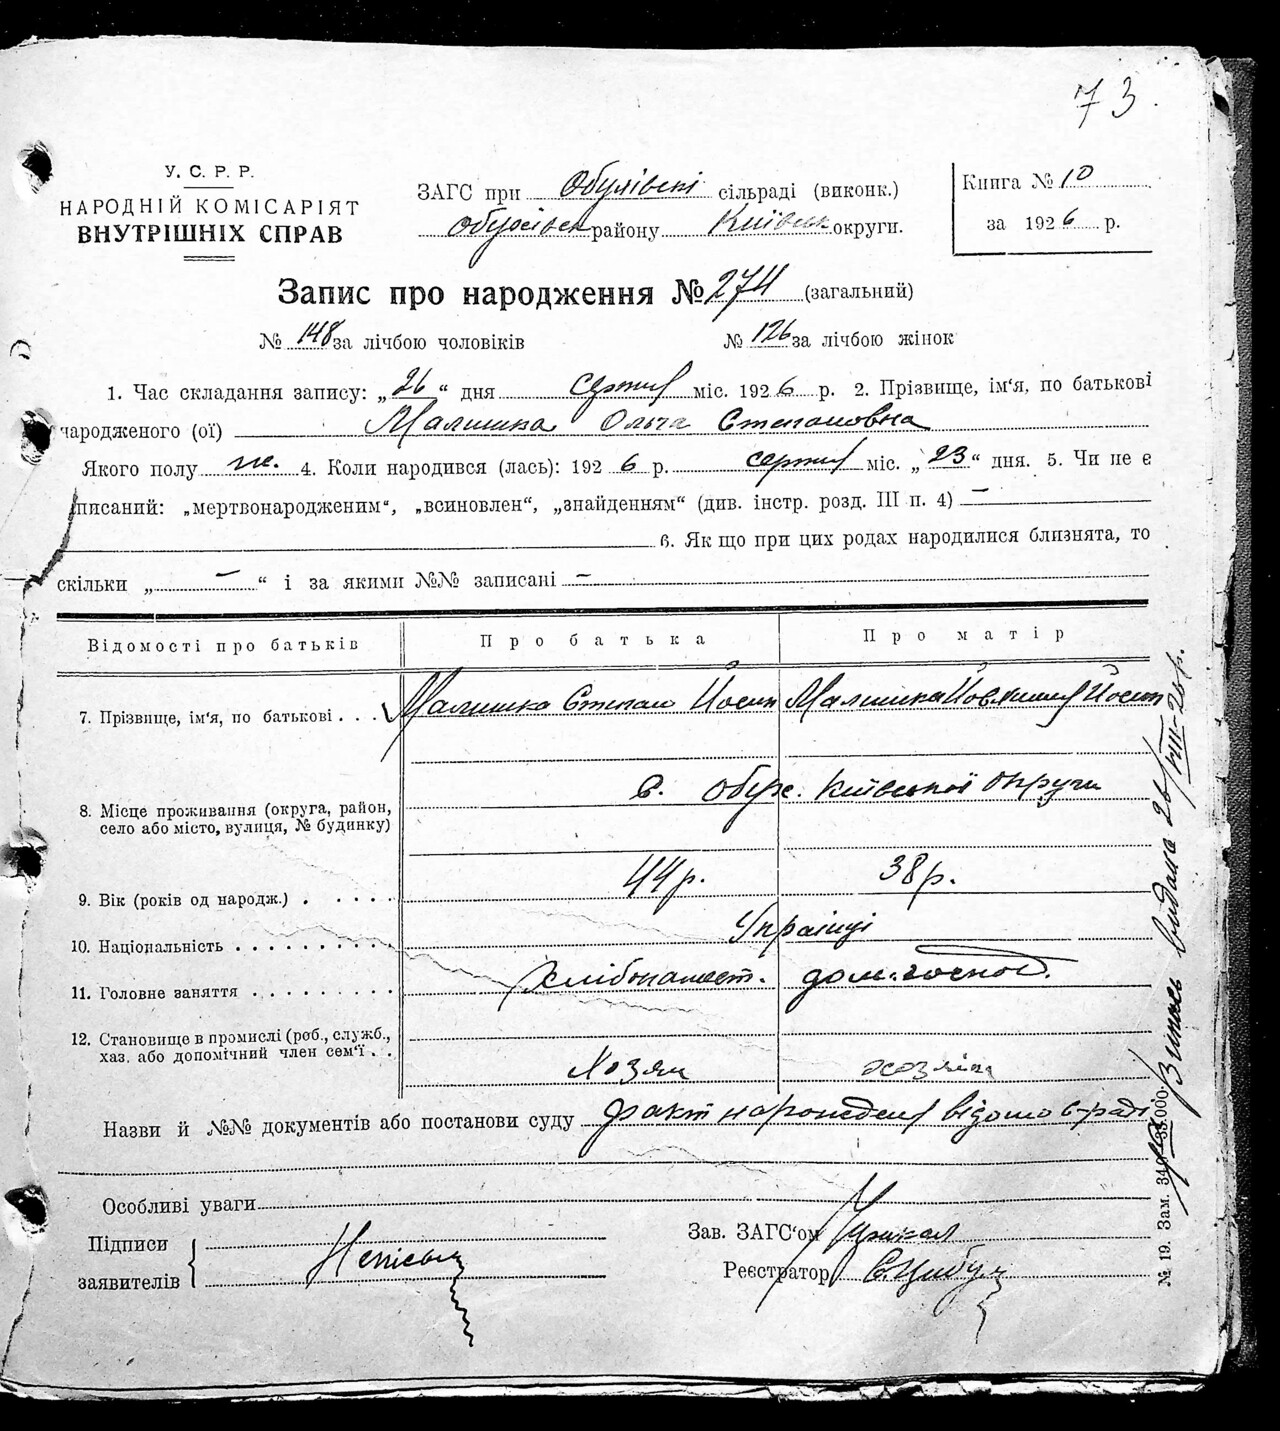 73.
У. С. Р. Р.
НАРОДНІЙ КОМІСАРІЯТ
ВНУТРІШНІХ СПРАВ
ЗАГС при сільраді (виконк.)
району округи.
Книга № 10
за 1926 р.
Запис про народження № 274 (загальний)
№ 148 за лічбою чоловіків № 126 за лічбою жінок
1. Час складання запису: „26“ дня серпня міс. 1926 р. 2. Прізвище, ім'я, по батькові
народженого (ої) Малишка Ольга Степановна
Якого полу ж. 4. Коли народився (лась): 1926 р. серпня міс. „23“ дня. 5. Чи не є
писаний: „мертвонародженим“, „всиновлен“, „знайденням“ (див. інстр. розд. III п. 4) —
6. Як що при цих родах народилися близнята, то
скільки „ — “ і за якими №№ записані —
Відомості про батьків Про батька Про матір
7. Прізвище, ім'я, по батькові . . . Малишко Степан Йосип Малишка Йосип
с. Обух. Київської округи
8. Місце проживання (округа, район,
село або місто, вулиця, № будинку)
9. Вік (років од народж.) . . . . . 44 р. 38 р.
10. Національність . . . . . . . . . Українці
11. Головне заняття . . . . . . . . . дом. господ.
12. Становище в промислі (роб., служб.,
хаз. або допомічний член сем'ї . .
Хозяин
Назви й №№ документів або постанови суду факт народжения відомо с-раді
Особливі уваги
Підписи
заявителів
Зав. ЗАГС'ом
Реєстратор
№ 19. Зам. 33.000.
Выпись выдана 26/VIII-26 р.